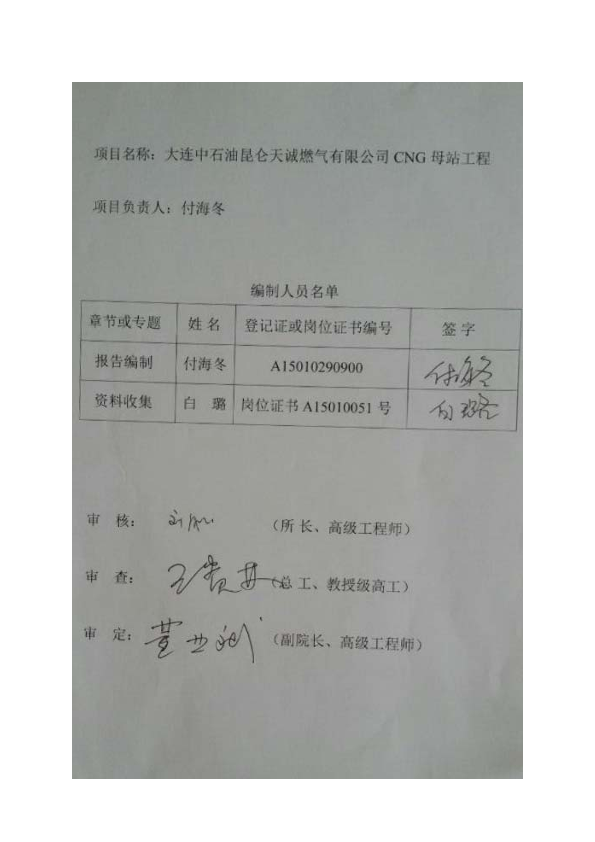 项目名称：大连中石油昆仑天诚燃气有限公司 CNG 母站工程
项目负责人：付海冬
编制人员名单
章节或专题 姓 名 登记证或岗位证书编号 签 字
报告编制 付海冬 A15010290900 付海冬
资料收集 白 璐 岗位证书 A15010051 号 白璐
审 核： （所 长、高级工程师）
审 查： （总 工、教授级高工）
审 定： （副院长、高级工程师）